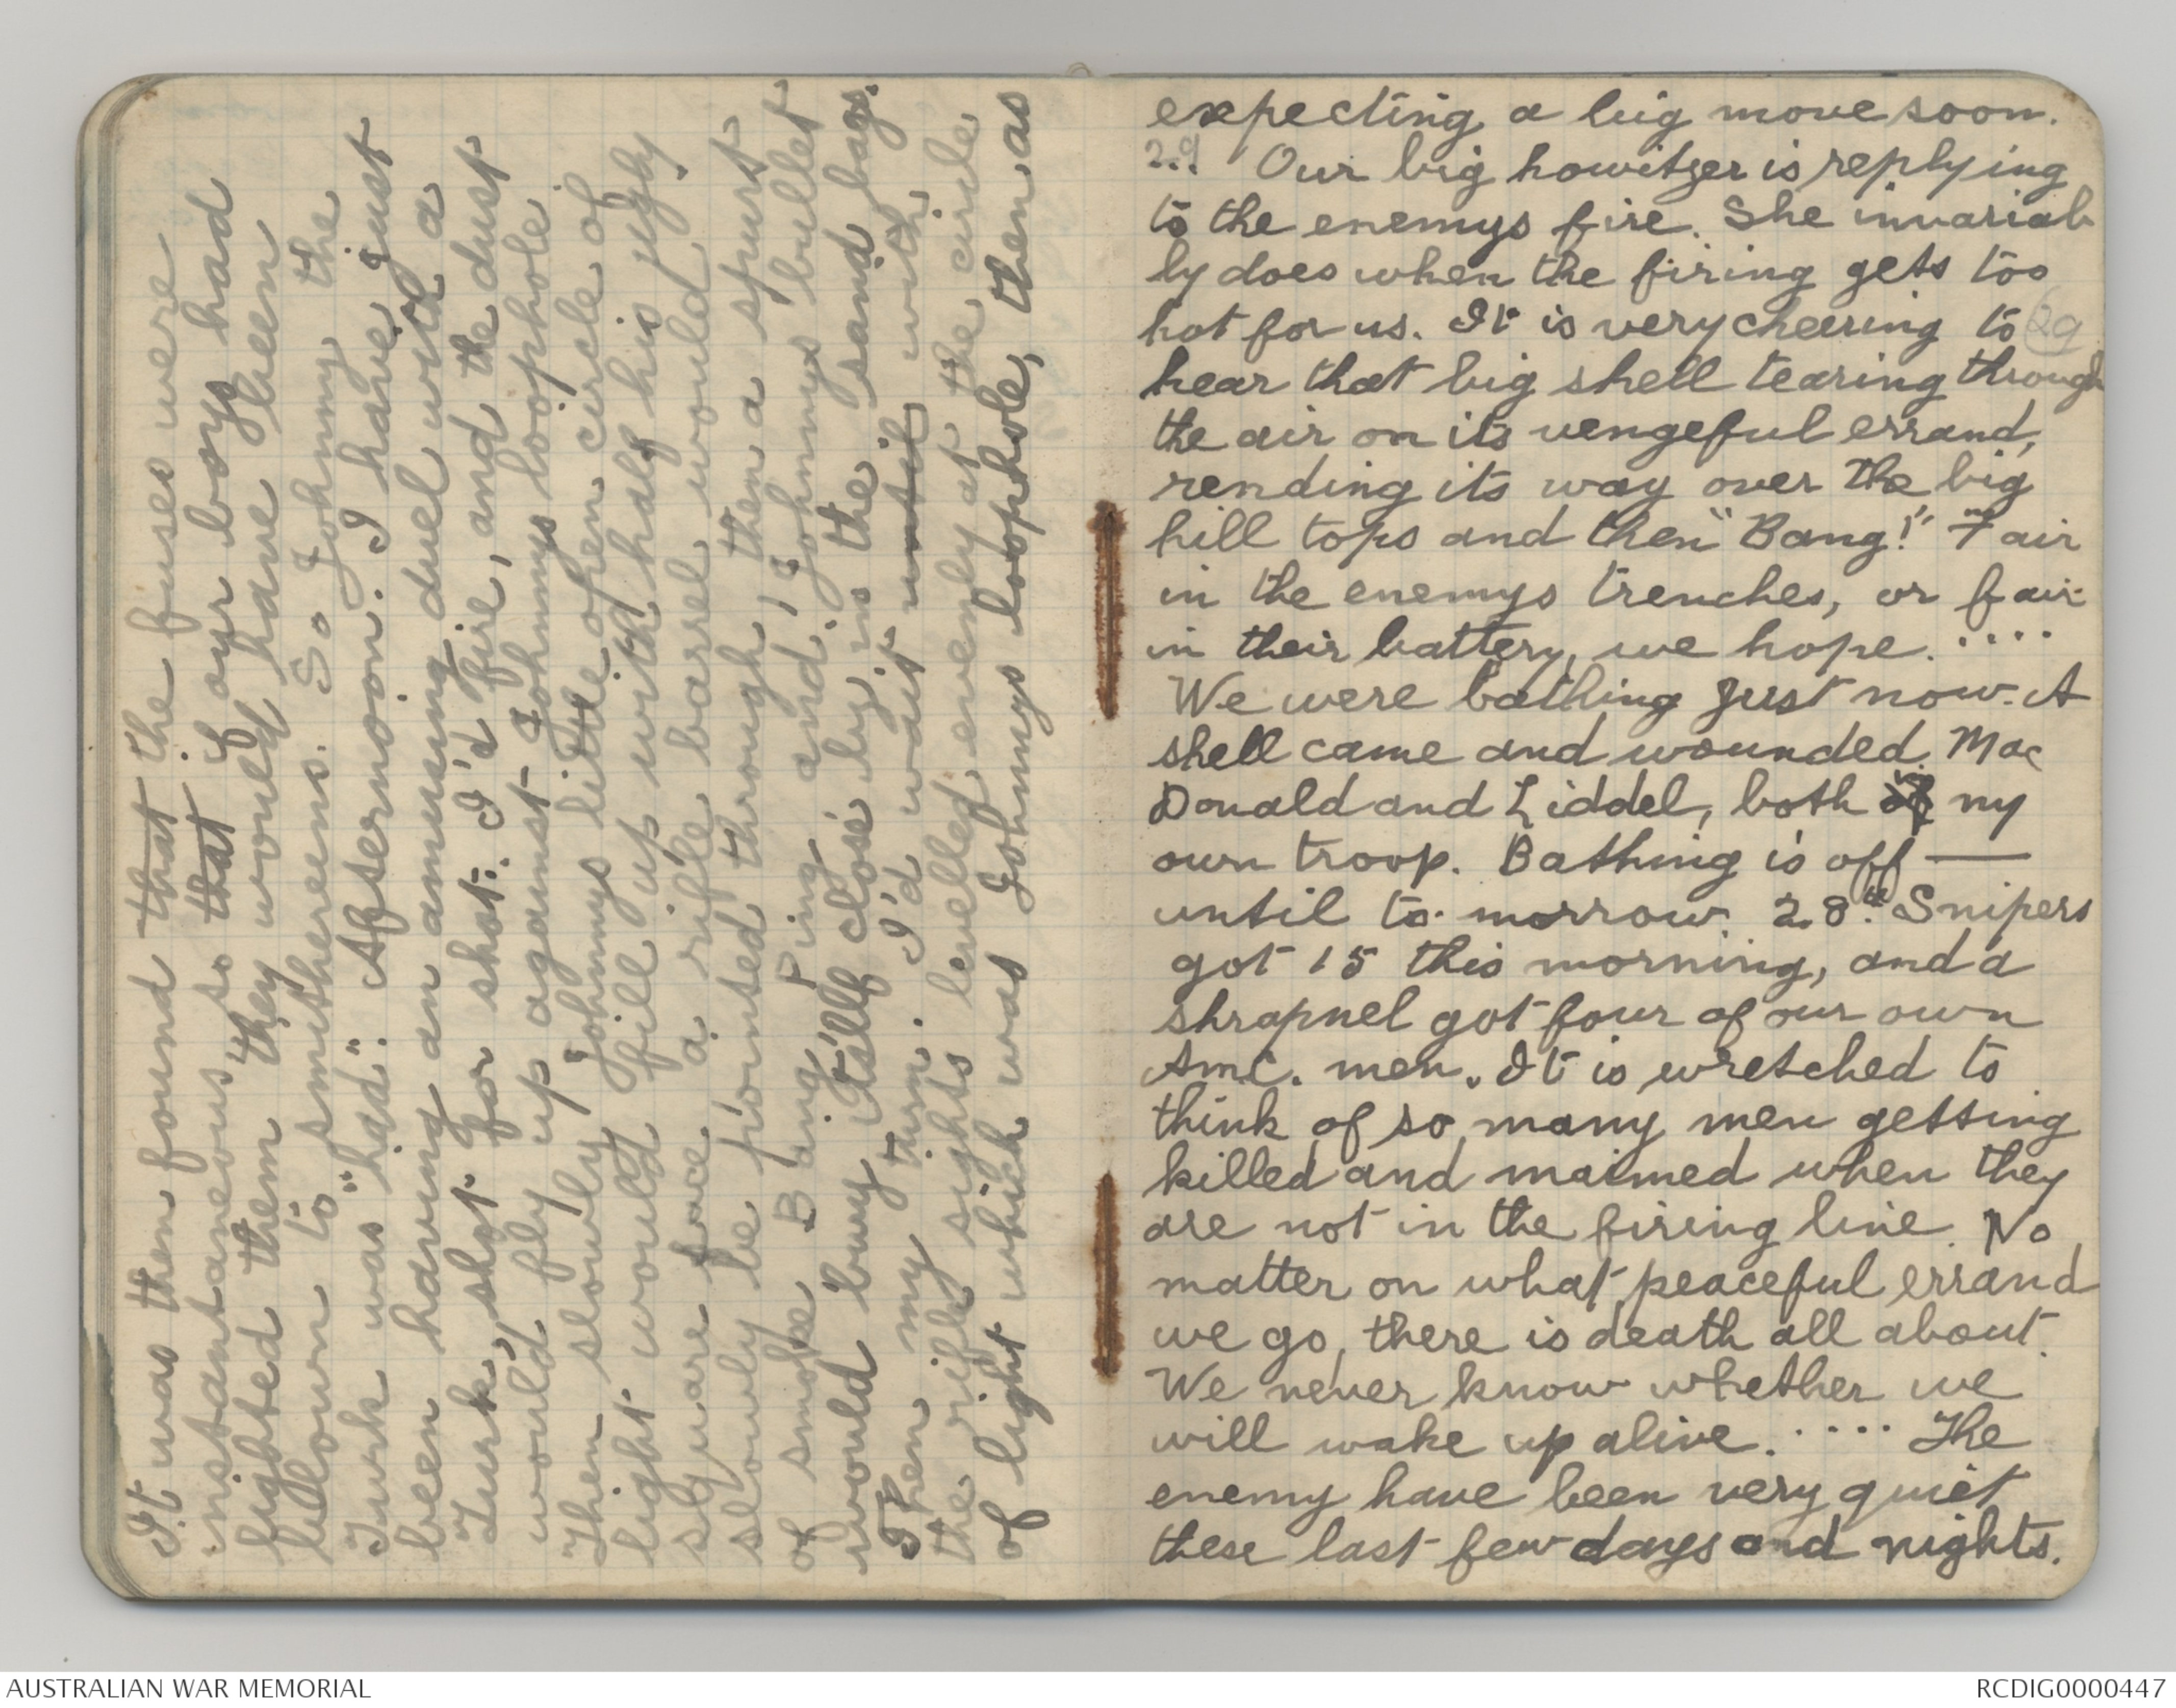 It was then found that the fuses were
instantaneous, so that if our boys had
lighted them they would have been
blown to smithereens. So Johnny the
Turk was "had". Afternoon. I have just
been having an amusing duel with a
Turk, slot for shot. I'd fire, and the dust
would fly up against Johnnys loophole.
Then slowly Johnnys little open circle of
light would fill up with half his ugly
square face, a rifle barrel would
slowly be pointed through, then a spurt
of smoke Bang! Ping and Johnnys bullet
would bury itself close by in the sand bags.
Then my turn. I'd wait until with
the rifle sights levelled evenly at the circle
of light which was Johnnys loophole, then as
expecting a big move soon.
29 Our big howitzer is replying
to the enemys fire. She invariab
ly does when the firing gets too
hot for us. It is very cheering to 29
hear that big shell tearing through
the air on its vengeful errand,
rending its way over the big
hill tops and then "Bang!" Fair
in the enemys trenches, or fair
in their battery, we hope. ....
We were bathing just now. A
shell came and wounded Mac
Donald and Liddel, both in my
own troop. Bathing is off —
until to-morrow. 28th. Snipers
got 15 this morning, and a
shrapnel got four of our own
Amc. men. It is wretched to
think of so many men getting
killed and maimed when they
are not in the firing line. No
matter on what peaceful errand
we go, there is death all about.
We never know whether we
will wake up alive. .... The
enemy have been very quiet
these last few days and nights.
AUSTRALIAN WAR MEMORIAL
RCDIG0000447